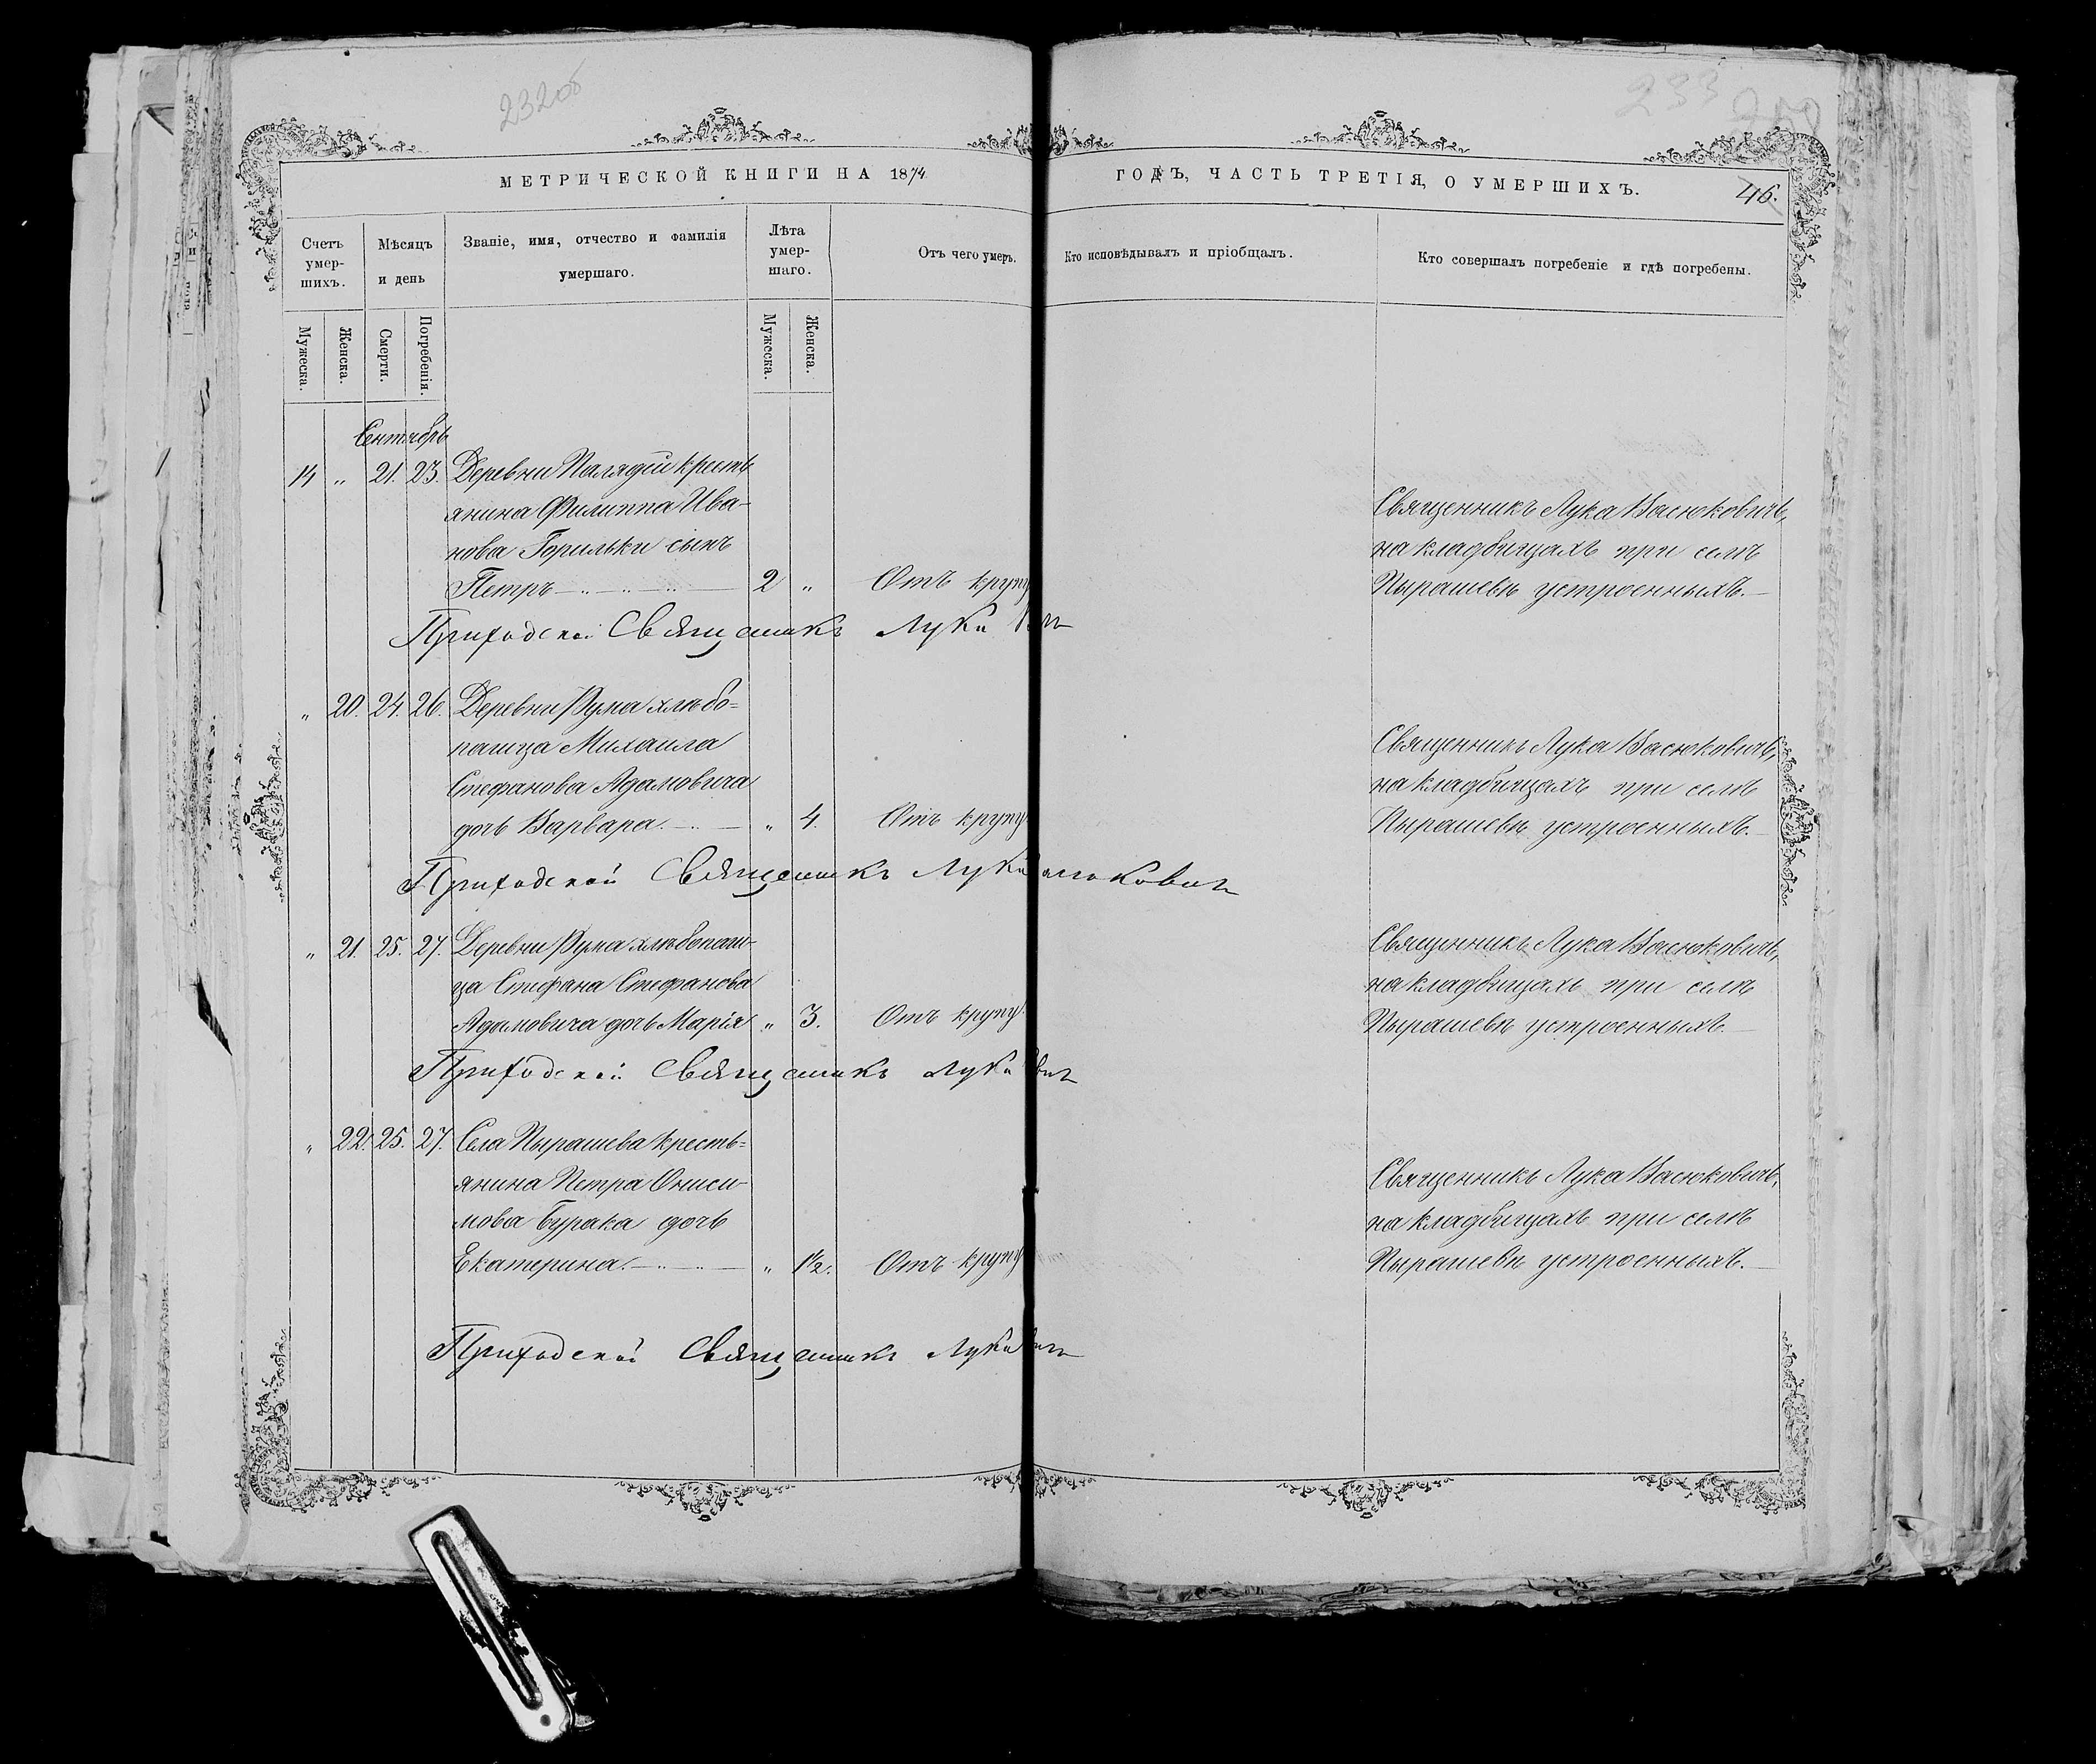 232об
233
МЕТРИЧЕСКОЙ КНИГИ НА 1874
ГОДЪ, ЧАСТЬ ТРЕТІЯ, О УМЕРШИХЪ.
46.
Счетъ умер-шихъ.
Мѣсяцъ и день
Званіе, имя, отчество и фамилія умершаго.
Лѣта умер-шаго.
Отъ чего умеръ.
Кто исповѣдывалъ и пріобщалъ.
Кто совершалъ погребеніе и гдѣ погребены.
Мужеска.
Женска.
Смерти.
Погребенія.
Мужеска.
Женска.
Сентябрь
14 „ 21. 23. Деревни Полядей кресть
янина Филиппа Ива-
нова Горильки сынъ
Петръ 2 „ Отъ крупу
Священникъ Лука Васюковичъ,
на кладбищахъ при селѣ
Пырашевѣ устроенныхъ.
Приходской Священникъ Лука
„ 20. 24. 26. Деревни Рума хлѣбо-
пашца Михаила
Стефанова Адамовича
дочь Варвара. „ 4. Отъ крупу
Священникъ Лука Васюковичъ,
на кладбищахъ при селѣ
Пырашевѣ устроенныхъ.
Приходской Священникъ Лука Васюковичъ
„ 21. 25. 27. Деревни Рума хлѣбопаш-
ца Стефана Стефанова
Адамовича дочь Марія „ 3. Отъ крупу.
Священникъ Лука Васюковичъ,
на кладбищахъ при селѣ
Пырашевѣ устроенныхъ.
Приходской Священникъ Лука
„ 22. 25. 27. Села Пырашева кресть-
янина Петра Ониси-
мова Бурака дочь
Екатерина. „ 1½. Отъ крупу
Священникъ Лука Васюковичъ,
на кладбищахъ при селѣ
Пырашевѣ устроенныхъ.
Приходской Священникъ Лука